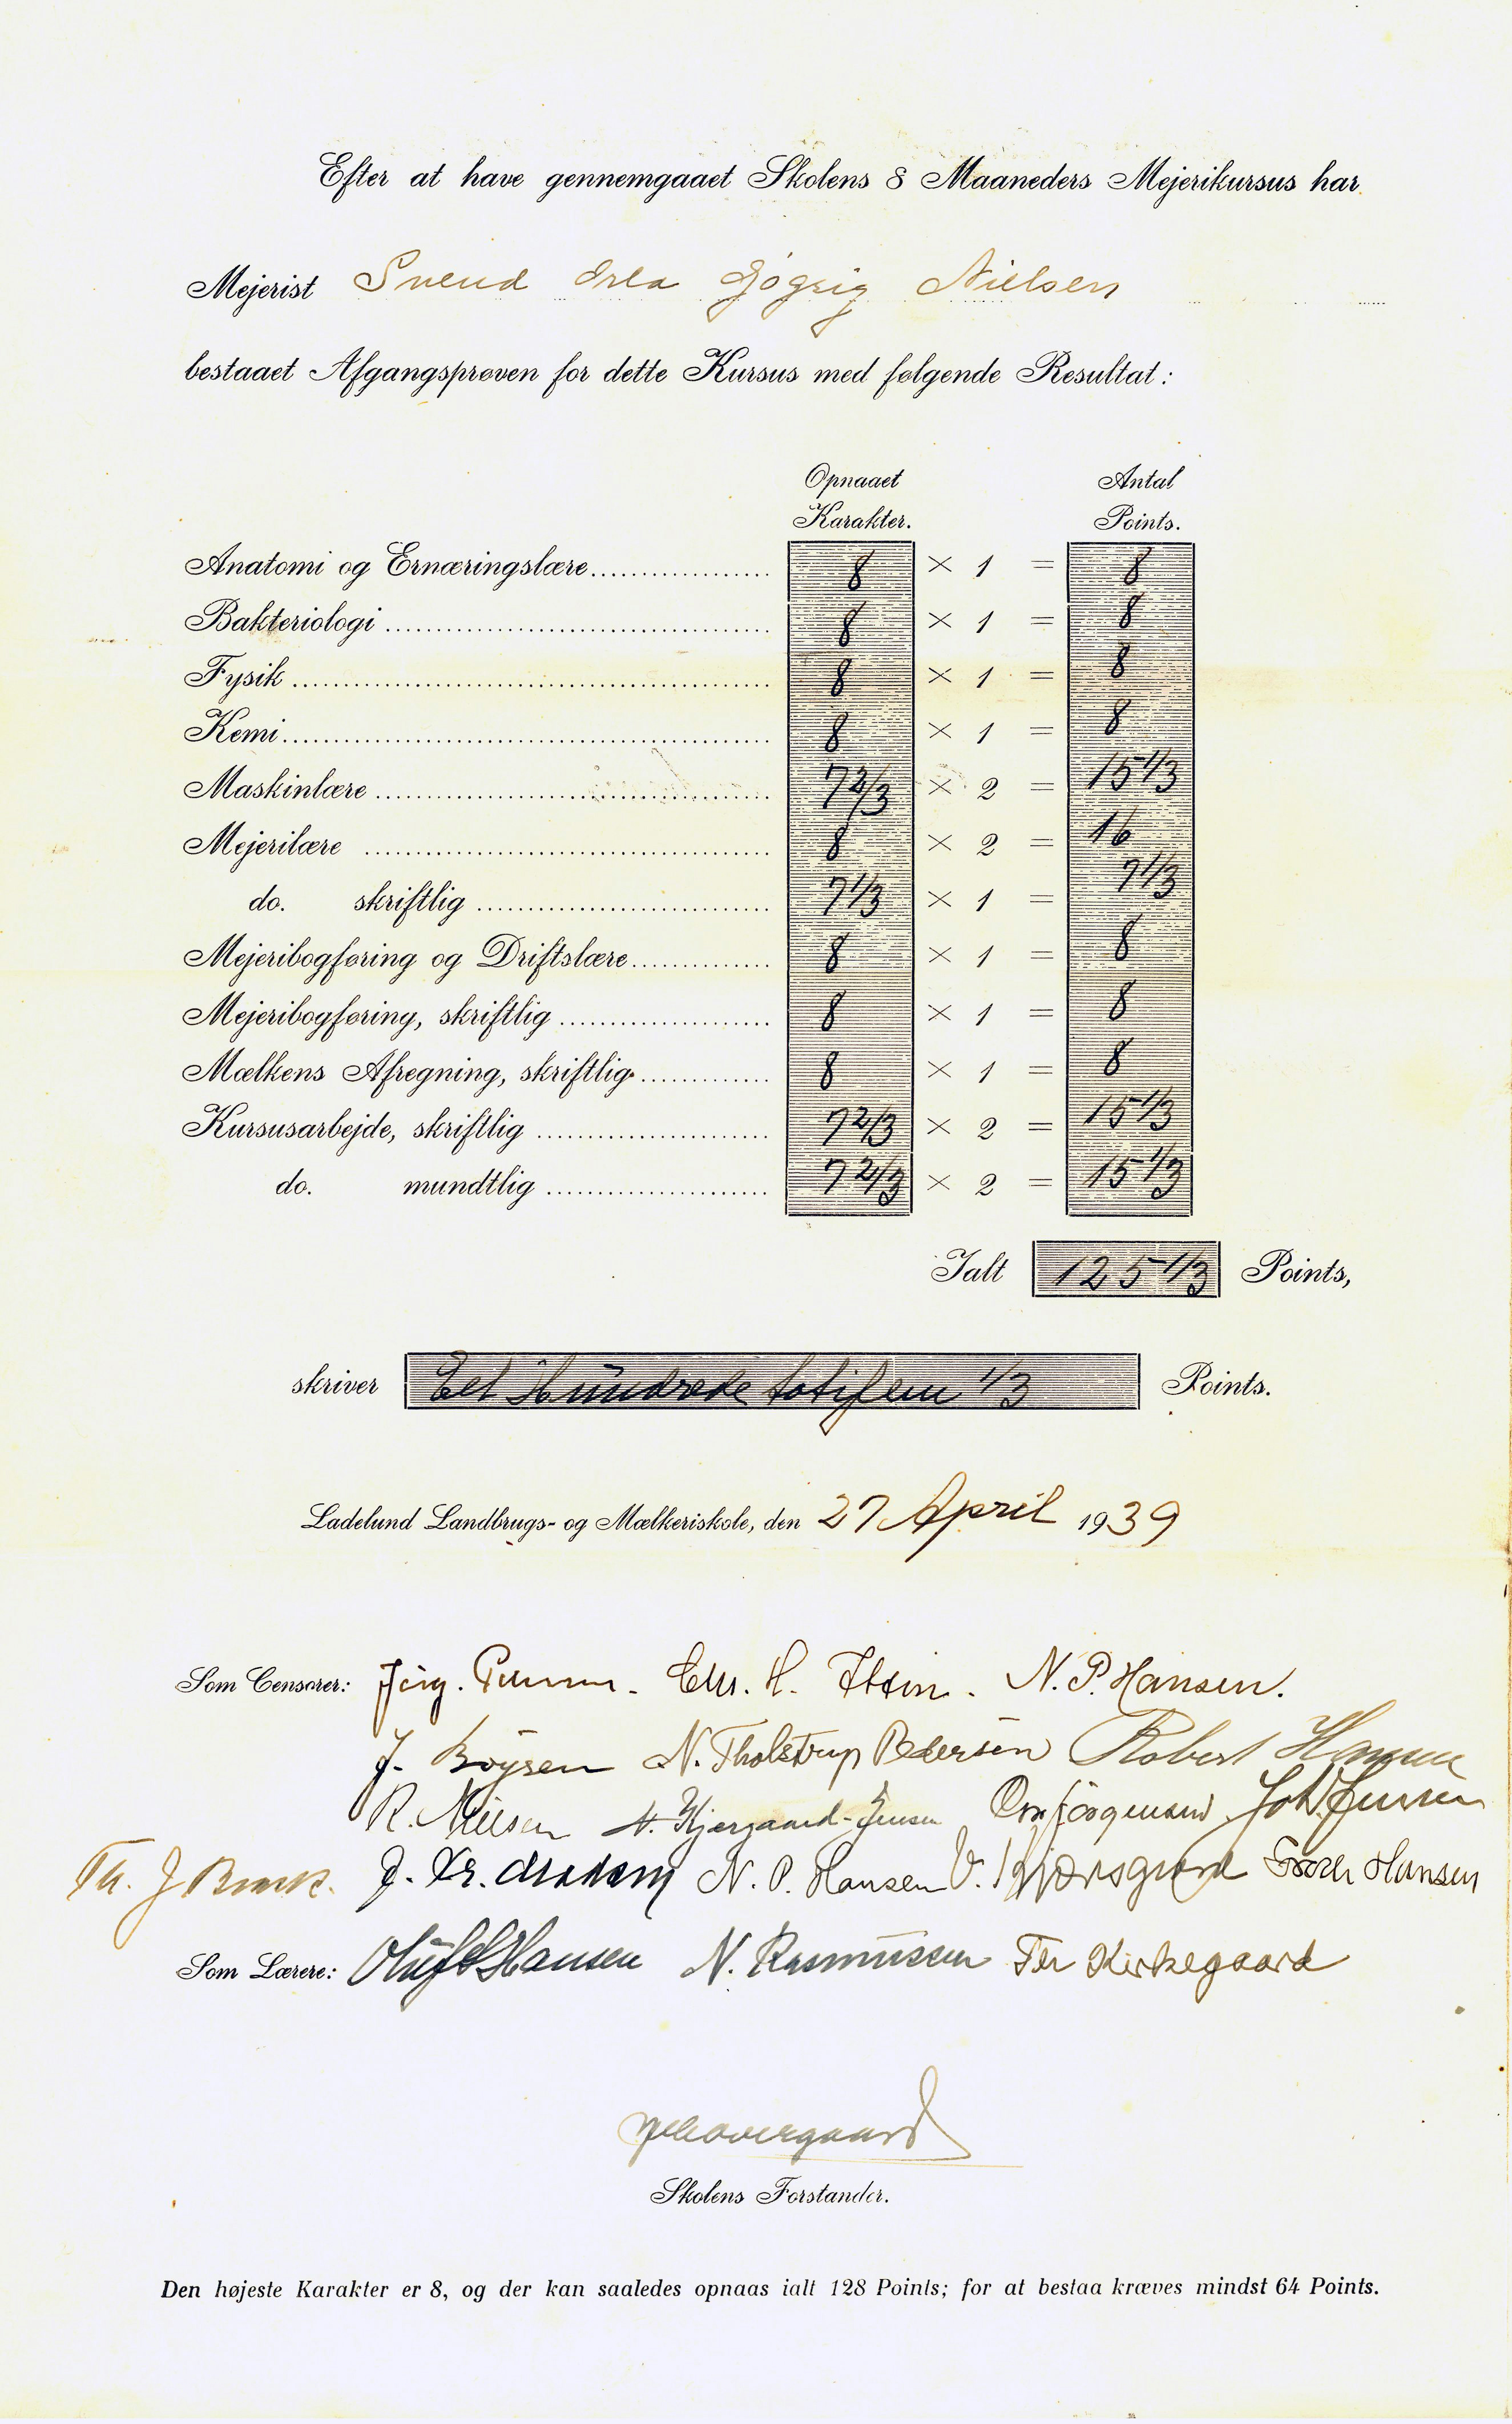 Efter at have gennemgaaet Skolens 8 Maaneders Mejerikursus har
Mejerist Svend Nielsen
bestaaet Afgangsprøven for dette Kursus med følgende Resultat:
Opnaaet Karakter. Antal Points.
Anatomi og Ernæringslære 8 × 1 = 8
Bakteriologi 8 × 1 = 8
Fysik 8 × 1 = 8
Kemi 8 × 1 = 8
Maskinlære 7 2/3 × 2 = 15 1/3
Mejerilære 8 × 2 = 16
do. skriftlig 7 1/3 × 1 = 7 1/3
Mejeribogføring og Driftslære 8 × 1 = 8
Mejeribogføring, skriftlig 8 × 1 = 8
Mælkens Afregning, skriftlig 8 × 1 = 8
Kursusarbejde, skriftlig 7 2/3 × 2 = 15 1/3
do. mundtlig 7 2/3 × 2 = 15 1/3
Ialt 125 1/3 Points,
skriver Et Hundrede 1/3 Points.
Ladelund Landbrugs- og Mælkeriskole, den 27 April 1939
Som Censorer: Chr. H. N. P. Hansen.
J. Boysen N. Tholstrup Pedersen Robert Hansen
R. Nielsen Kjergaard-Jensen Jørgensen Joh. Jensen
Th. J N. P. Hansen V. Hansen
Som Lærere: Oluf Hansen N. Rasmussen Kirkegaard
Overgaard
Skolens Forstander.
Den højeste Karakter er 8, og der kan saaledes opnaas ialt 128 Points; for at bestaa kræves mindst 64 Points.